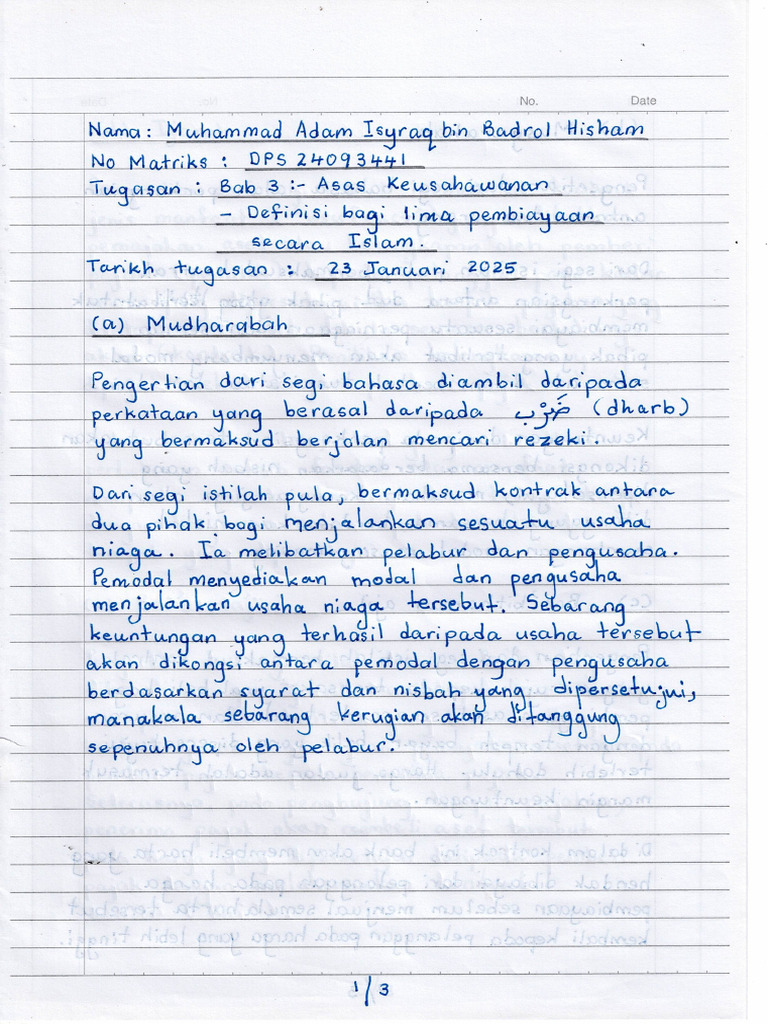 No. Date
Nama: Muhammad Adam Isyraq bin Badrol Hisham
No Matriks : DPS 24093441
Tugasan : Bab 3 :- Asas Keusahawanan
- Definisi bagi lima pembiayaan
secara Islam.
Tarikh tugasan : 23 Januari 2025
(a) Mudharabah
Pengertian dari segi bahasa diambil daripada
perkataan yang berasal daripada ضَرْب (dharb)
yang bermaksud berjalan mencari rezeki.
Dari segi istilah pula, bermaksud kontrak antara
dua pihak bagi menjalankan sesuatu usaha
niaga. Ia melibatkan pelabur dan pengusaha.
Pemodal menyediakan modal dan pengusaha
menjalankan usaha niaga tersebut. Sebarang
keuntungan yang terhasil daripada usaha tersebut
akan dikongsi antara pemodal dengan pengusaha
berdasarkan syarat dan nisbah yang dipersetujui,
manakala sebarang kerugian akan ditanggung
sepenuhnya oleh pelabur.
1/3